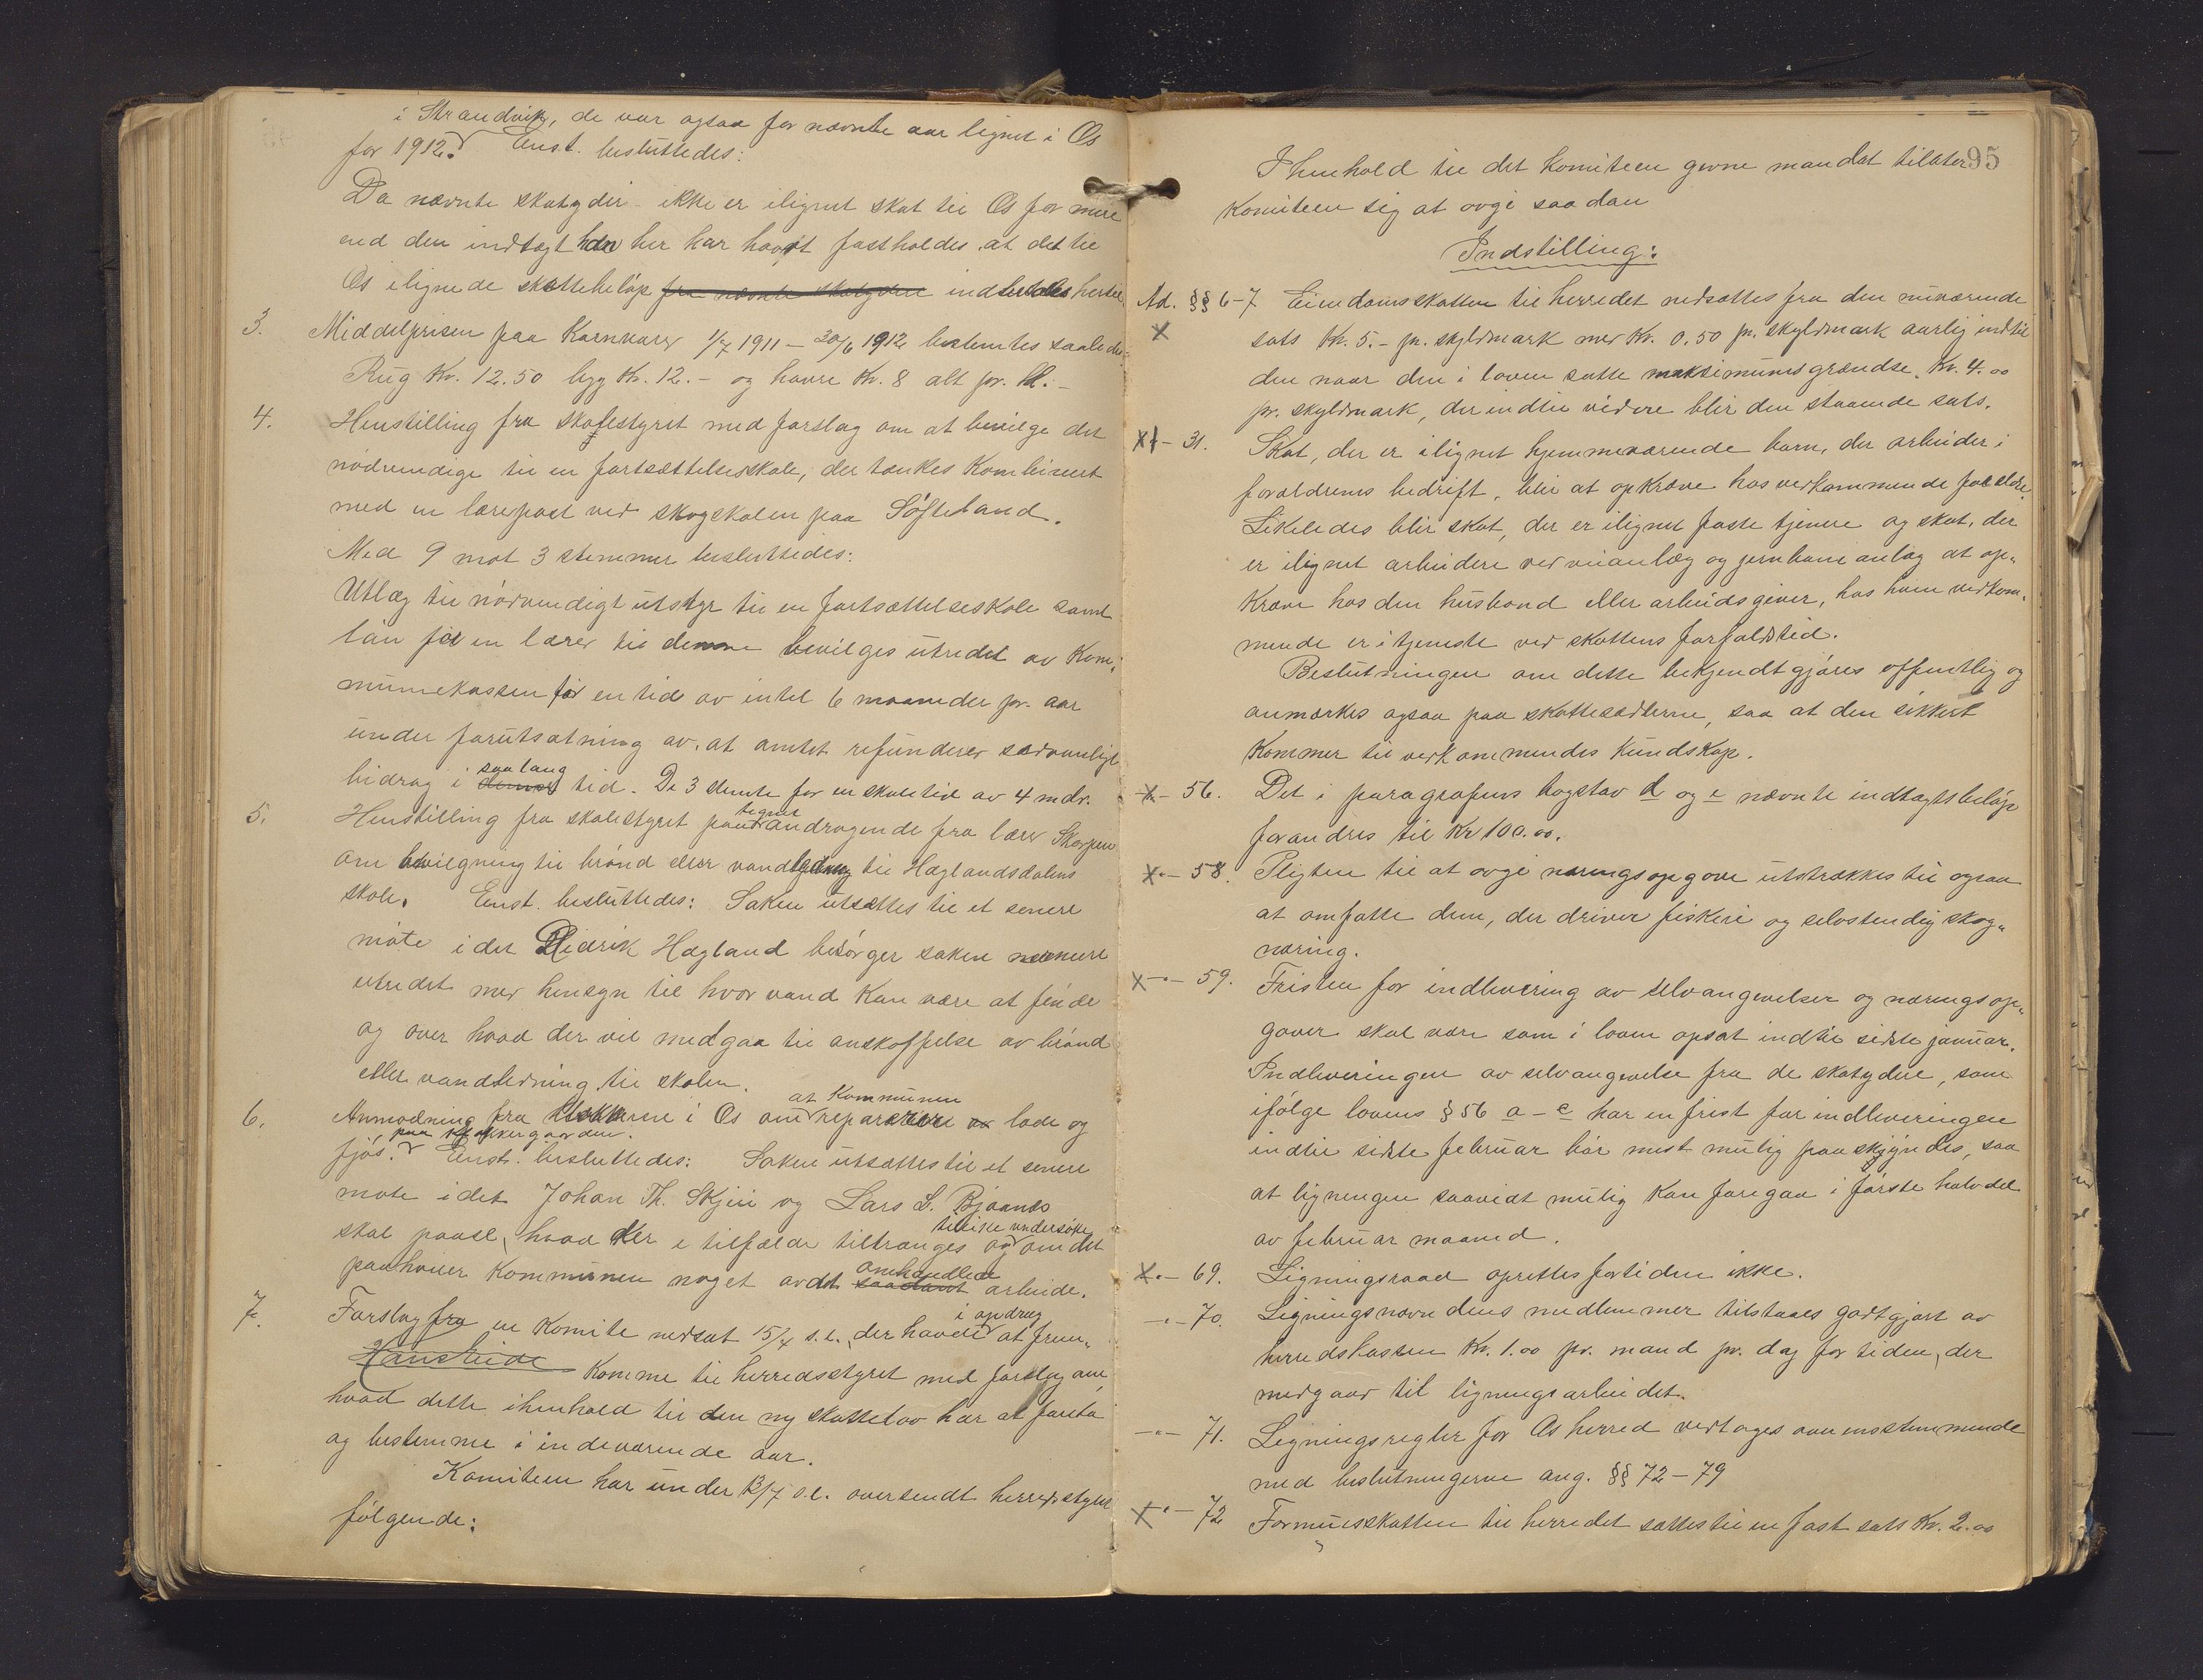 i Strandvik, de var ogsaa for nævnte aar lignet i Os
for 1912. Enst. besluttedes:
Da nævnte skatyder ikke er ilignet skat til Os for mere
end den indtægt han her har havt fastholdes at det til
Os ilignede skattebeløp fra nævnte skatydere indbetales hertil
3. Middelprisen paa Kornvarer 1/7 1911 – 30/6 1912 bestemtes saaledes:
Rug Kr. 12.50 byg Kr. 12.- og havre Kr. 8 alt pr. hl.-
4. Henstilling fra skolestyret med forslag om at bevilge det
nødvendige til en fortsættelsesskole, der tænkes Kombinert
med en lærepost ved skogskolen paa Søfteland.
Med 9 mot 3 stemmer besluttedes:
Utlæg til nødvendigt utstyr til en fortsættelseskole samt
løn for en lærer til denne bevilges utredet av Kom-
munekassen for en tid av intil 6 maaneder pr. aar
under forutsætning av, at amtet refunderer sedvanligt
bidrag i saa lang denne tid. De 3 stemte for en skoletid av 4 mdr.
5. Henstilling fra skolestyret paa tegnet andragende fra lærer Skorpen
om bevilgning til brønd eller vandledning til Hæglandsdalens
skole. Enst. besluttedes: Saken utsættes til et senere
møte idet Didrik Hægland besørger saken nærmere
utredet med hensyn til hvor vand Kan være at finde
og over hvad der vil medgaa til anskaffelse av brønd
eller vandledning til skolen.
at Kommunen
6. Anmodning fra Klokkerne i Os om reparere lade og
paa Klokkergaarden.
fjøs. Enst. besluttedes: Saken utsættes til et senere
møte idet Johan Th. Skjei og Lars L. Bjaanæs
tillike undersøke
skal paase, hvad der i tilfælde tiltrænges og om det
omhandlede
paahviler Kommunen noget av det saadant arbeide.
i opdrag
7. Forslag fra en Komite nedsat 15/4 s.l. der havde at frem-
Komme til herredsstyret med forslag om,
hvad dette ihenhold til den ny skattelov har at foreta
og bestemme i indeværende aar.
Komiteen har under 13/7 s.l. oversendt herredsstyret
følgende:
95
I henhold til det Komiteen givne mandat tillater
Komiteen sig at avgi saadan
Indstilling:
Ad. §§ 6-7 Eiendomsskatten til herredet nedsættes fra den nuværende
X sats Kr. 5.- pr. skyldmark med Kr. 0.50 pr. skyldmark aarlig indtil
den naar den i loven satte maksimumsgrændse, Kr. 4.00
pr. skyldmark, der indtil videre blir den staaende sats.
X - 31. Skat, der er ilignet hjemmeværende barn, der arbeider i
forældrenes bedrift, blir at opkræve hos vedkommende forældre.
Likeledes blir skat, der er ilignet faste tjenere og skat, der
er ilignet arbeidere ved veianlæg og jernbaneanlæg at op-
kræve hos den husbond eller arbeidsgiver, hos hvem vedkom-
mende er i tjeneste ved skattens forfaldstid.
Beslutningen om dette bekjendtgjøres offentlig og
anmerkes ogsaa paa skattesedlerne, saa at den sikkert
Kommer til vedkommendes Kundskap.
X - 56. Det i paragrafens bogstav d og e nævnte indtægtsbeløp
forandres til Kr 100.00.
X.- 58. Pligten til at avgi næringsopgave utstrækkes til ogsaa
at omfatte dem, der driver fiskeri og selvstendig skog-
næring.
X -.- 59. Fristen for indlevering av selvangivelser og næringsop-
gaver skal være som i loven opsat indtil sidste januar.
Indleveringen av selvangivelse fra de skatydere, som
ifølge lovens § 56 a – c har en frist for indleveringen
indtil sidste februar bør mest mulig paaskyndes, saa
at ligningen saavidt mulig Kan foregaa i første halvdel
av februar maaned.
X.- 69. Ligningsraad oprettes fortiden ikke.
-.- 70. Ligningsnævndens medlemmer tilstaaes godtgjørt av
herredskassen Kr. 1.00 pr. mand pr. dag for tiden, der
medgaar til ligningsarbeidet.
-.- 71. Ligningsregler for Os herred vedtages overensstemmende
med beslutningerne ang. §§ 72-79
X.- 72 Formuesskatten til herredet sættes til en fast sats Kr. 2.00